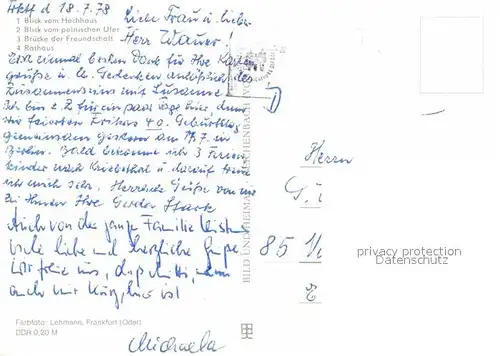 Fkft d 18.7.78
Liebe Frau u. lieber
Herr Wauer!
1 Blick vom Hochhaus
2 Blick vom polnischen Ufer
3 Brücke der Freundschaft
4 Rathaus
Erst einmal besten Dank für Ihre Karten
grüße u. lb. Gedenken anläßlich des
Zusammenseins mit Susanne
Ich bin z. Z. für ein paar Tage hier denn
wir feierten 40. Geburtstag
gemeinsam gestern am 17.7. in
Berlin. Bald bekomme ich 3 Ferien
kinder nach Kriebethal u darauf freue
ich mich sehr. Herzliche Grüße von mir
zu Ihnen Ihre Gerda Stark
Auch von der ganze Familie
viele liebe und herzliche Grüße
Wir freuen uns, daß Mutti, wenn
auch nur kurz, hier ist
Michaela
Herrn
G.
85
BILD UND HEIMAT REICHENBACH (VOGTL)
privacy protection
Datenschutz
Farbfoto: Lehmann, Frankfurt (Oder)
DDR 0,20 M